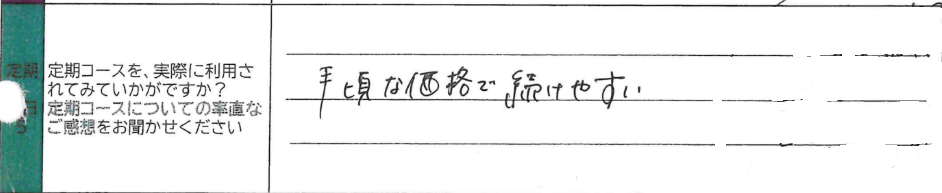 定期
定期コースを、実際に利用さ
れてみていかがですか?
定期コースについての率直な
ご感想をお聞かせください
手頃な価格で続けやすい